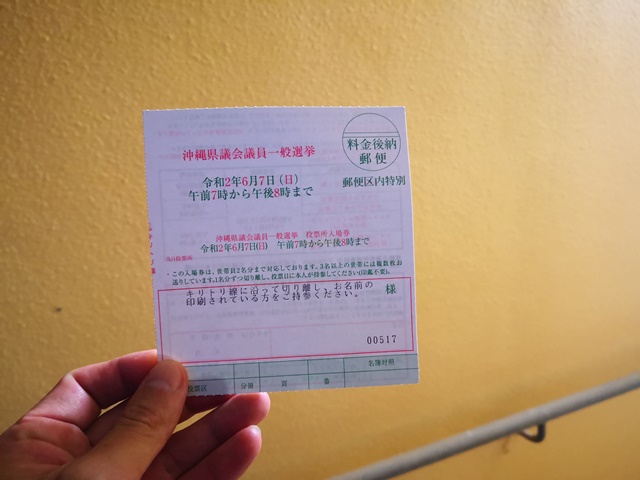 料金後納
郵便
沖縄県議会議員一般選挙
令和2年6月7日(日)
午前7時から午後8時まで
郵便区内特別
沖縄県議会議員一般選挙 投票所入場券
令和2年6月7日(日) 午前7時から午後8時まで
・この入場券は、世帯員2名分まで対応しております。3名以上の世帯には複数枚お
送りしています。1名分ずつ切り離し、投票日に本人が持参してください(印鑑不要)。
キリトリ線に沿って切り離し、お名前の
印刷されている方をご持参ください。
様
00517
名簿対照
投票区 分冊 頁 番